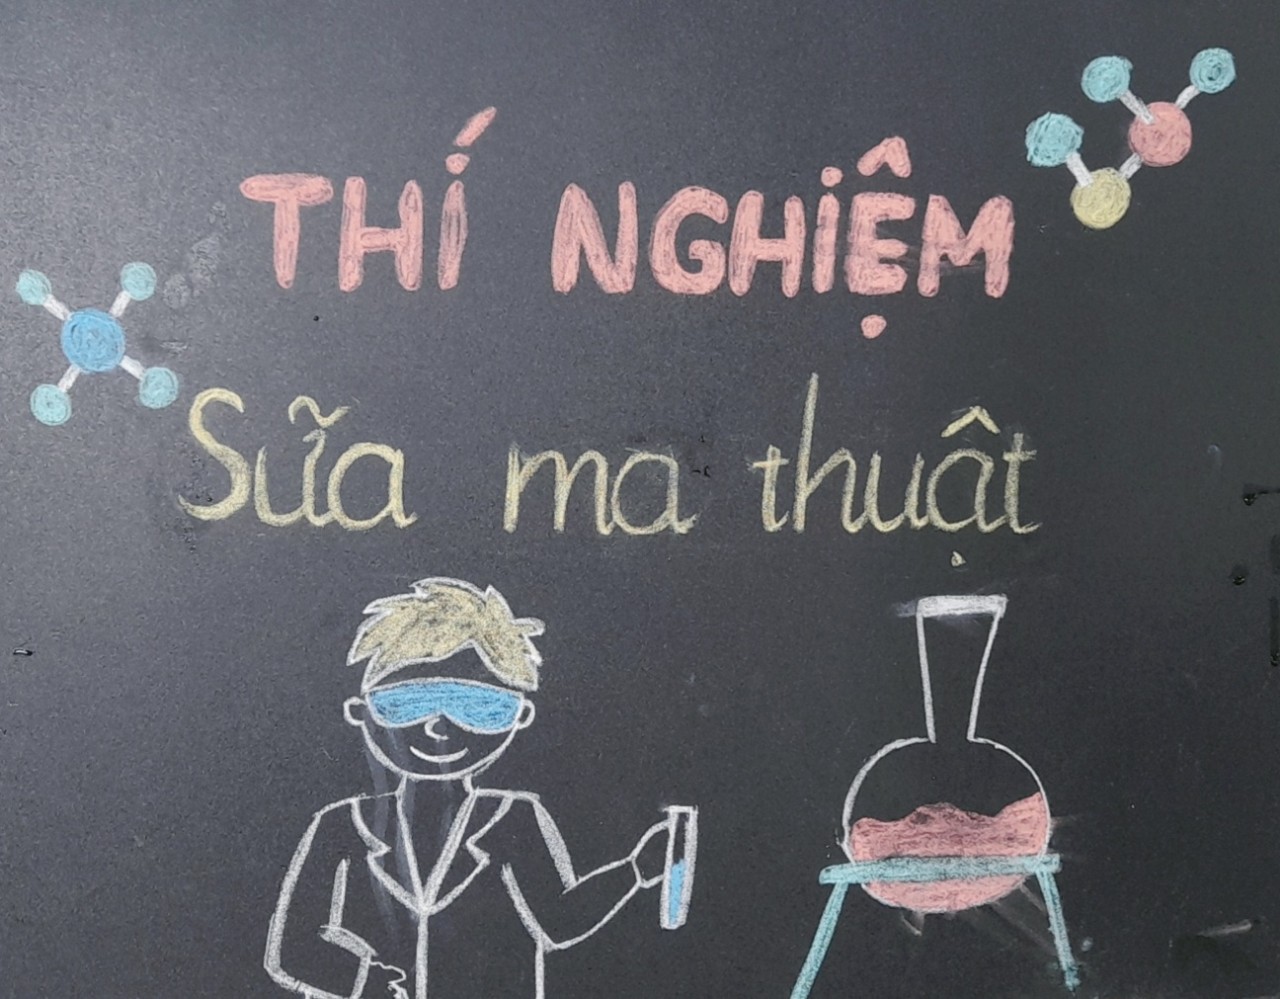 THÍ NGHIỆM
Sữa ma thuật